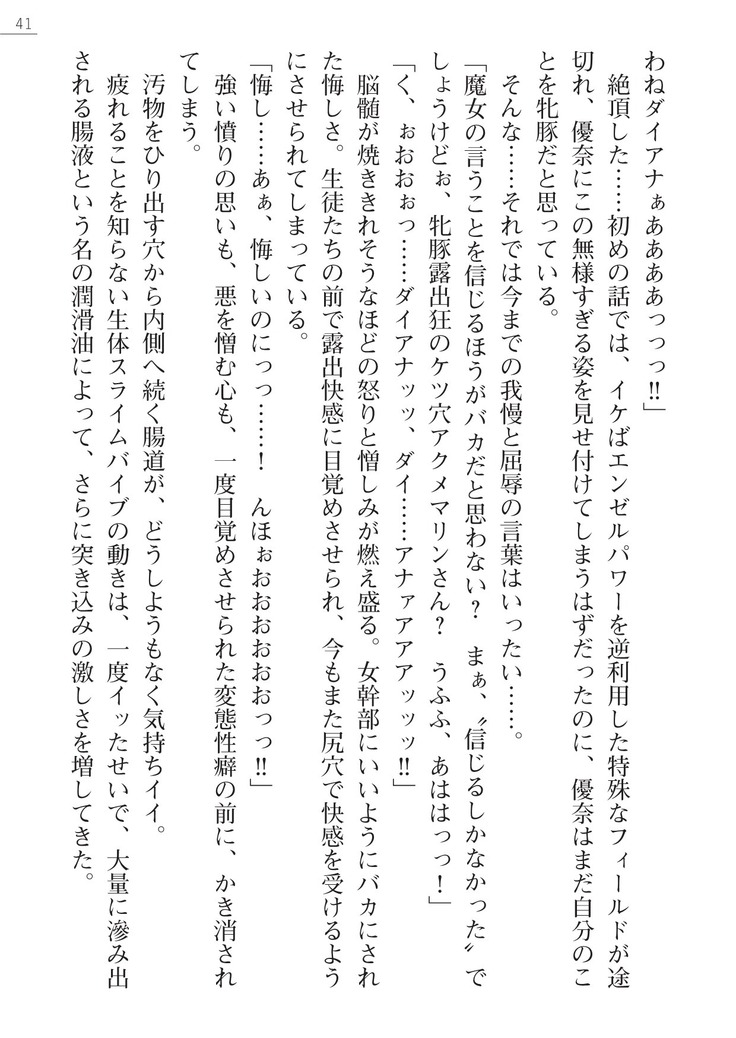 41
わねダイアナぁああああっっっ‼」
　絶頂した……初めの話では、イケばエンゼルパワーを逆利用した特殊なフィールドが途
切れ、優奈にこの無様すぎる姿を見せ付けてしまうはずだったのに、優奈はまだ自分のこ
とを牝豚だと思っている。
　そんな……それでは今までの我慢と屈辱の言葉はいったい……。
「魔女の言うことを信じるほうがバカだと思わない？　まぁ、〝信じるしかなかった〟で
しょうけどぉ、牝豚露出狂のケツ穴アクメマリンさん？　うふふ、あははっっ！」
「く、ぉおおぉっ……ダイアナッッ、ダイ……アナァアアアッッッ‼」
　脳髄が焼ききれそうなほどの怒りと憎しみが燃え盛る。女幹部にいいようにバカにされ
た悔しさ。生徒たちの前で露出快感に目覚めさせられ、今もまた尻穴で快感を受けるよう
にさせられてしまっている。
「悔し……あぁ、悔しいのにっっ……！　んほぉおおおおおおっっ‼」
　強い憤りの思いも、悪を憎む心も、一度目覚めさせられた変態性癖の前に、かき消され
てしまう。
　汚物をひり出す穴から内側へ続く腸道が、どうしようもなく気持ちイイ。
　疲れることを知らない生体スライムバイブの動きは、一度イッたせいで、大量に滲み出
される腸液という名の潤滑油によって、さらに突き込みの激しさを増してきた。